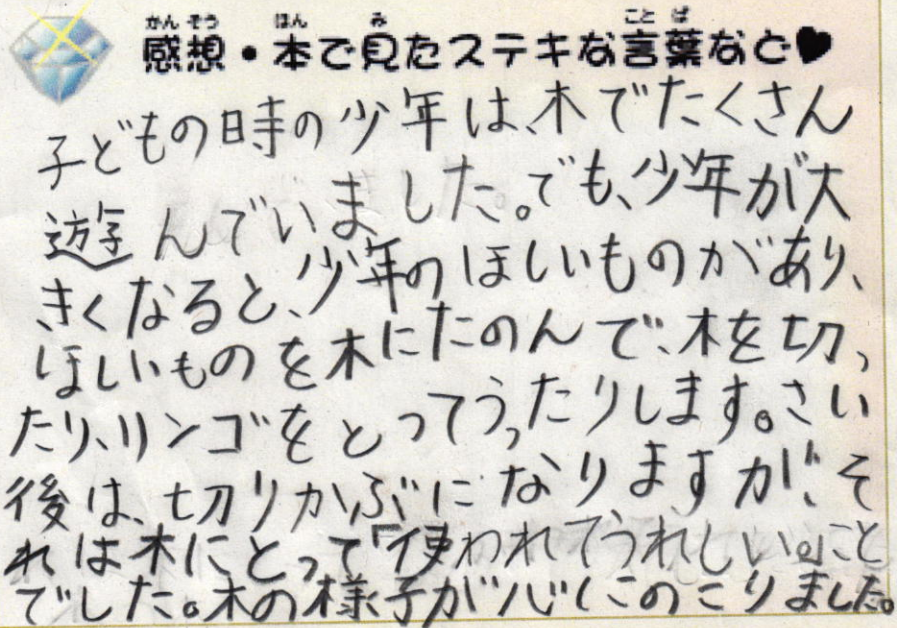 感想・本で見たステキな言葉など♥
子どもの時の少年は、木でたくさん
遊んでいました。でも、少年が大
きくなると、少年のほしいものがあり、
ほしいものを木にたのんで、木を切っ
たり、リンゴをとってうったりします。さい
後は、切りかぶになりますが、そ
れは木にとって「使われてうれしい。」こと
でした。木の様子が心にのこりました。